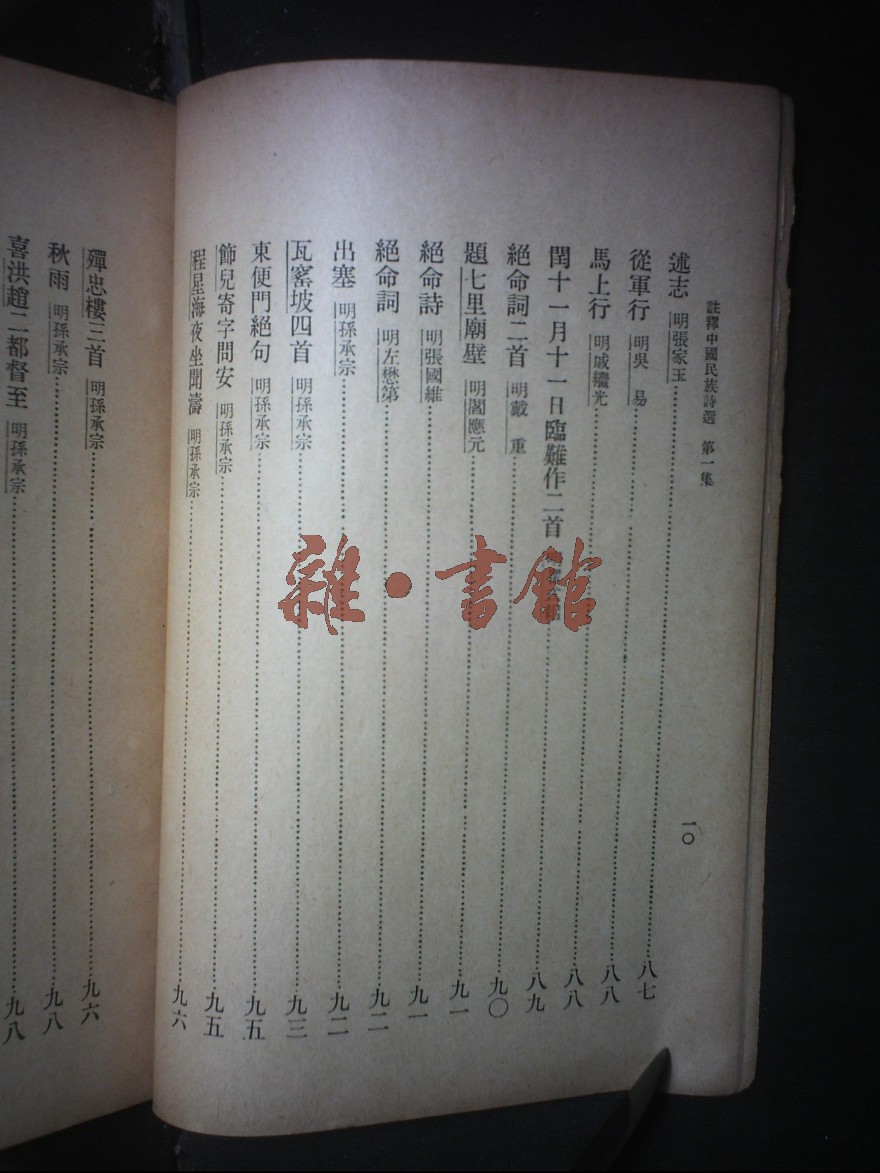 註釋中國民族詩選 第一集
一〇
述志 明張家玉 八七
從軍行 明吳易 八八
馬上行 明戚繼光 八八
閏十一月十一日臨難作二首 八九
絕命詞二首 明戴重 九〇
題七里廟壁 明閻應元 九一
絕命詩 明張國維 九一
絕命詞 明左懋第 九二
出塞 明孫承宗 九二
瓦窰坡四首 明孫承宗 九三
東便門絕句 明孫承宗 九五
飾兒寄字問安 明孫承宗 九五
程星海夜坐聞濤 明孫承宗 九六
殫忠樓三首 明孫承宗 九六
秋雨 明孫承宗 九八
喜洪趙二都督至 明孫承宗 九八
雜·書館